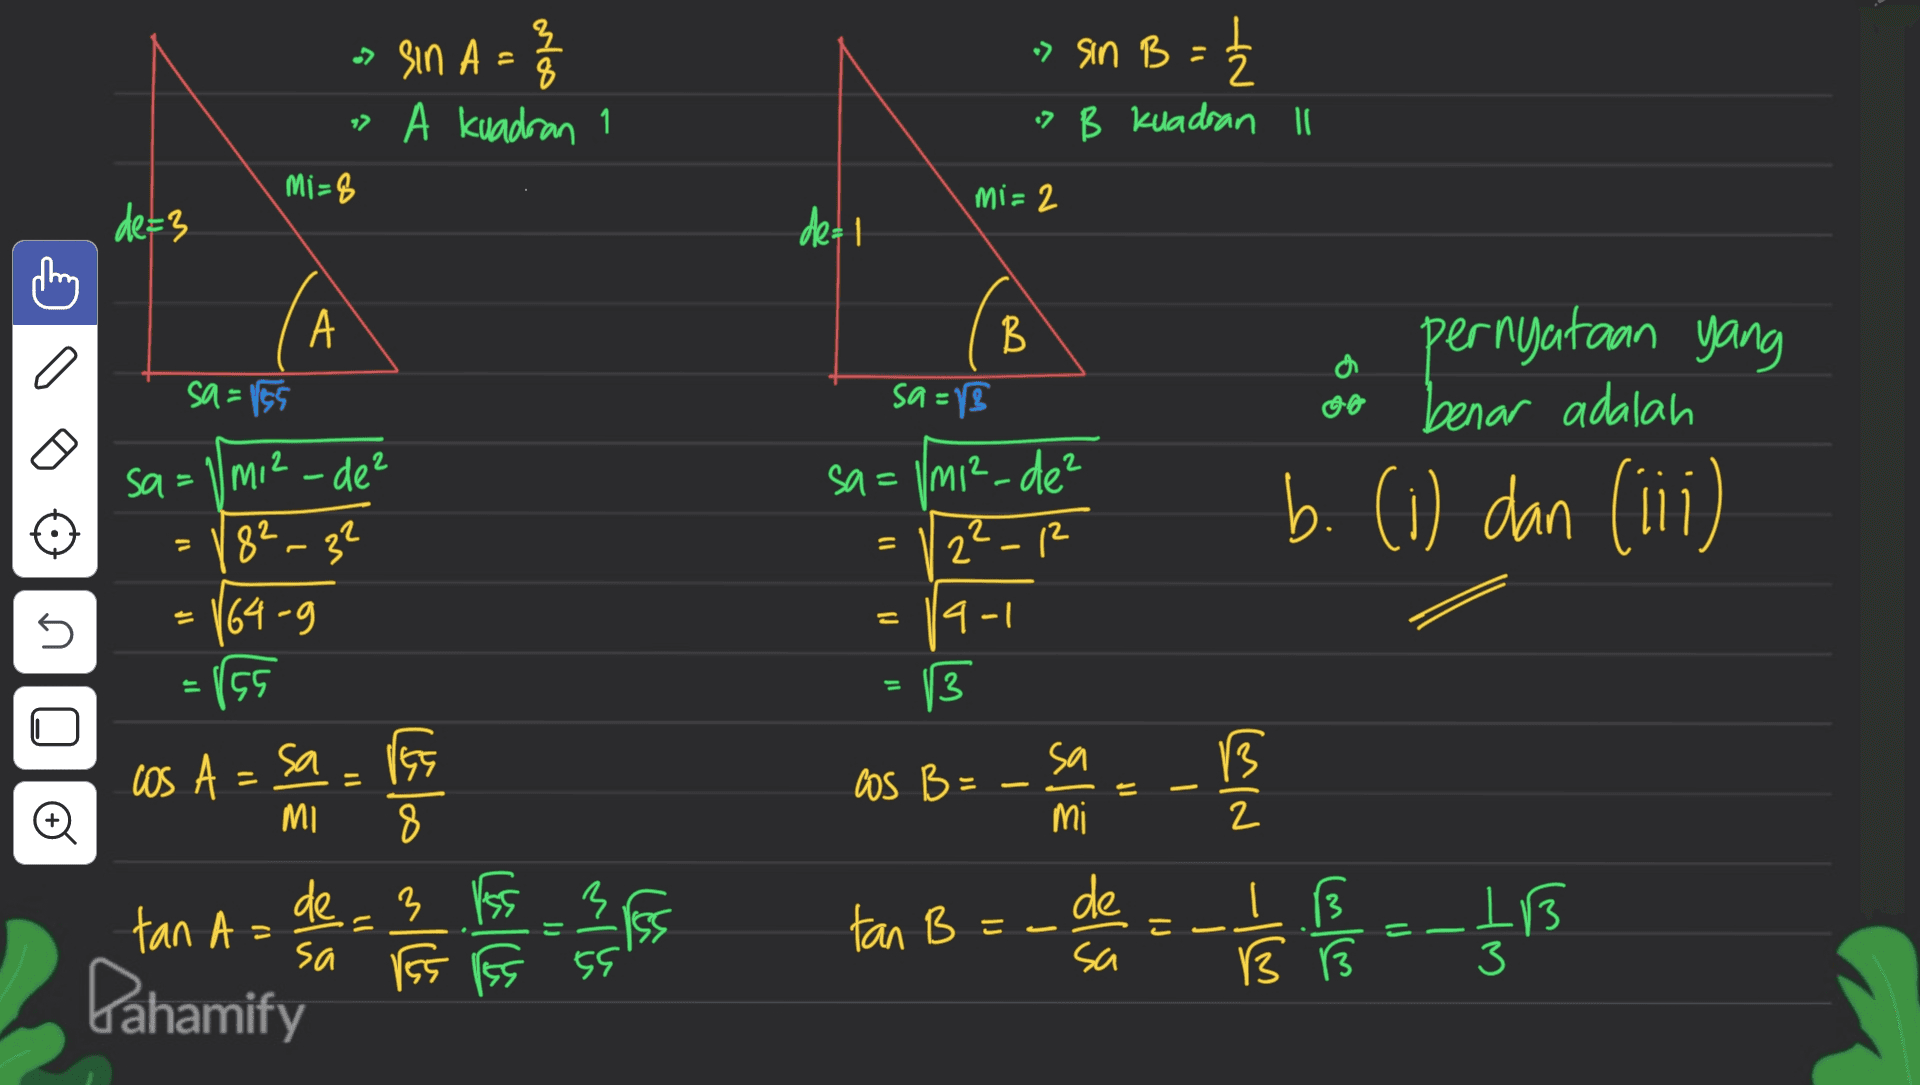 => sin A = 3/8
=> A kuadran 1
mi=8
de=3
A
sa = √55
sa = √mi² – de²
= √8² – 3²
= √64 - 9
= √55
cos A = sa/mi = √55/8
tan A = de/sa = 3/√55 · √55/√55 = 3/55 √55
=> sin B = 1/2
=> B kuadran II
mi = 2
de=1
B
sa = √3
sa = √mi² – de²
= √2² – 1²
= √4 - 1
= √3
cos B = – sa/mi = – √3/2
tan B = – de/sa = – 1/√3 · √3/√3 = – 1/3 √3
∴ pernyataan yang
benar adalah
b. (i) dan (iii)
Pahamify